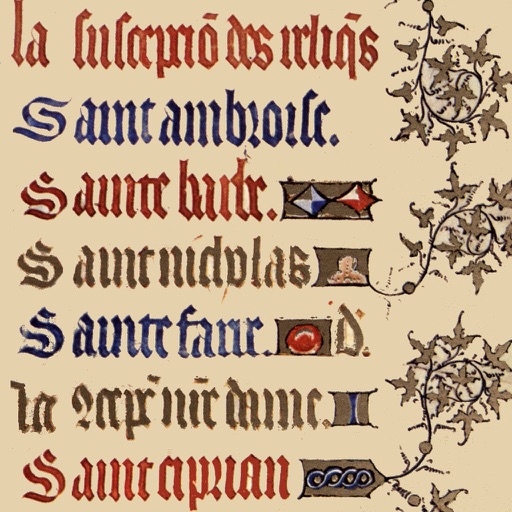 la suscepciō des reliq̄s
Saint ambroise.
Sainte barbe.
Saint nicholas
Sainte fare. d'.
la 9cep̄ nr̄e dame.
Saint ciprian